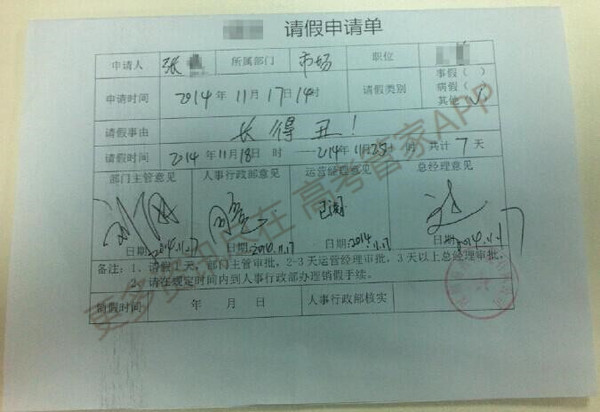 请假申请单
申请人 张 所属部门 市场 职位
申请时间 2014年11月17日14时 请假类别 事假（ ） 病假（ ） 其他（√）
请假事由 长得丑！
请假时间 2014年11月18日 时——2014年11月25日 时 共计7天
部门主管意见 人事行政部意见 运营经理意见 总经理意见
已阅
日期2014.11.17 日期2014.11.17 日期：2014.11.17 日期2014.11.17
备注：1、请假1天，部门主管审批，2-3天运营经理审批，3天以上总经理审批。
2、请在规定时间内到人事行政部办理销假手续。
销假时间 年 月 日 人事行政部核实
更多 在 高考管家APP